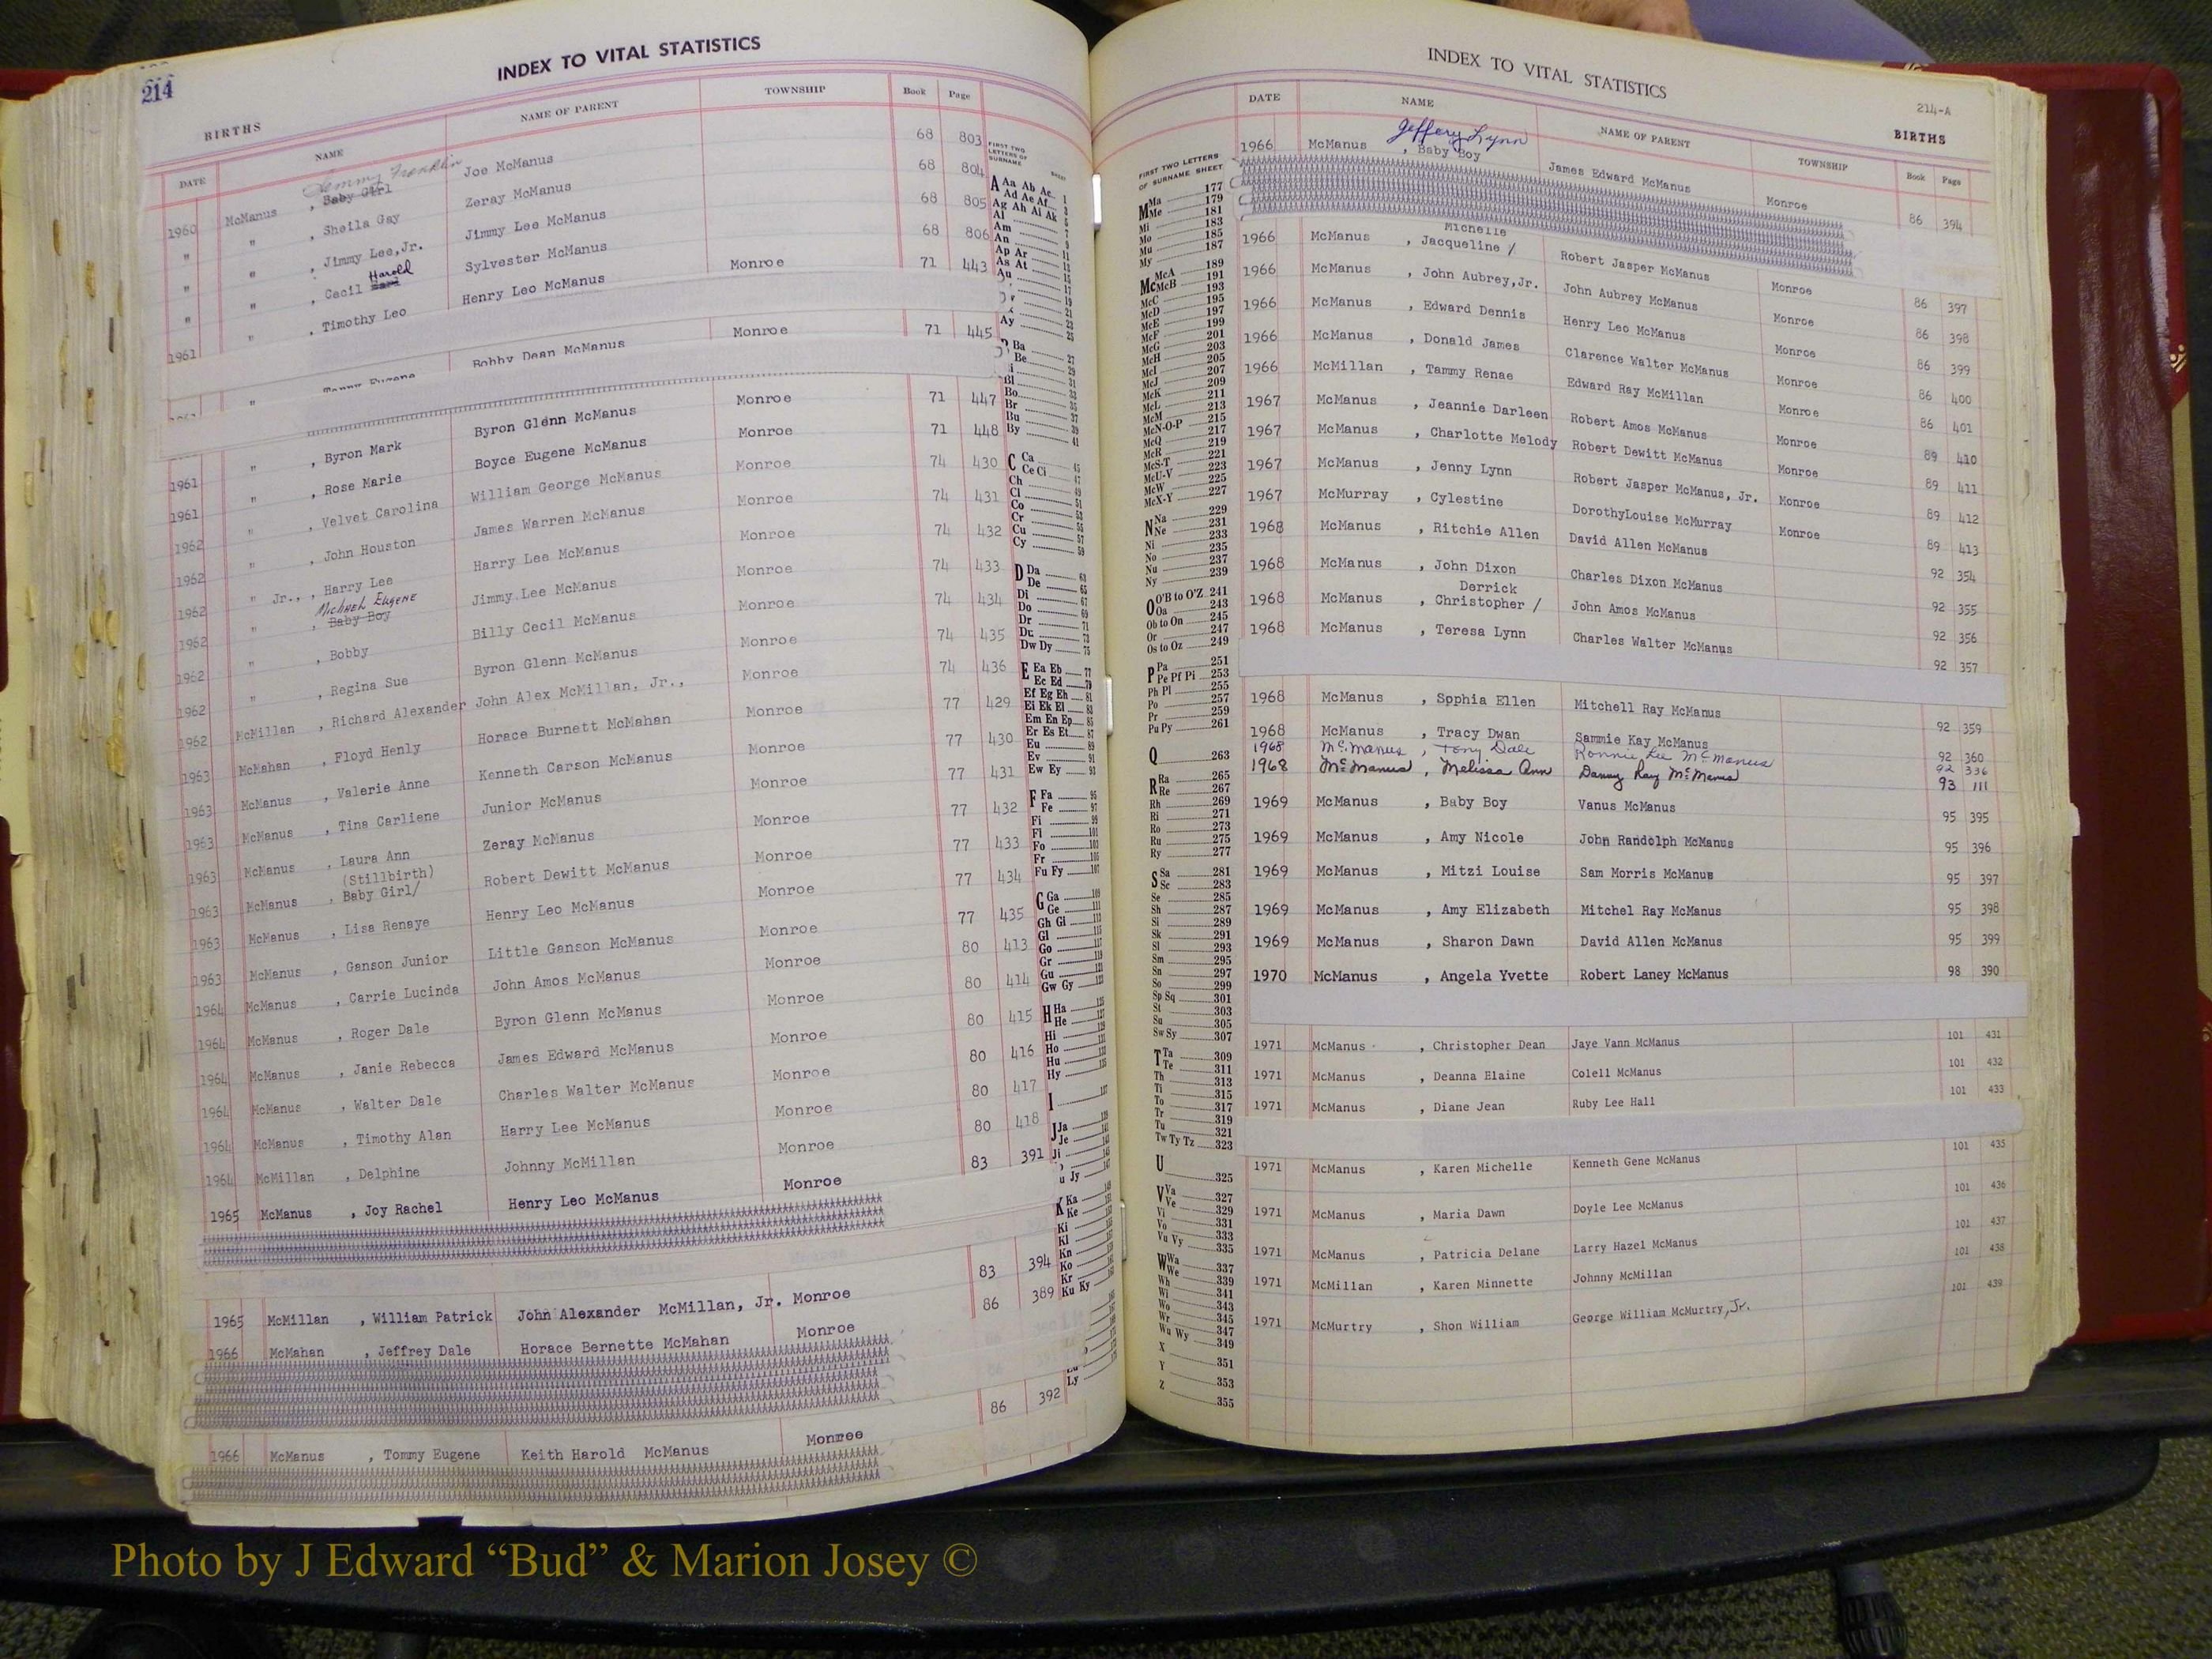 214
INDEX TO VITAL STATISTICS
BIRTHS
DATE NAME NAME OF PARENT TOWNSHIP Book Page
1960 McManus , Baby Girl Joe McManus 68 803
" " , Sheila Gay Zeray McManus 68 804
" " , Jimmy Lee,Jr. Jimmy Lee McManus 68 805
Harold
" " , Cecil Sylvester McManus 68 806
1961 " , Timothy Leo Henry Leo McManus Monroe 71 443
" Eugene Bobby Dean McManus Monroe 71 445
1961 " , Byron Mark Byron Glenn McManus Monroe 71 447
1961 " , Rose Marie Boyce Eugene McManus Monroe 71 448
1962 " , Velvet Carolina William George McManus Monroe 74 430
1962 " , John Houston James Warren McManus Monroe 74 431
1962 " Jr., , Harry Lee Harry Lee McManus Monroe 74 432
Michael Eugene
1962 " , Baby Boy Jimmy Lee McManus Monroe 74 433
1962 " , Bobby Billy Cecil McManus Monroe 74 434
1962 " , Regina Sue Byron Glenn McManus Monroe 74 435
1962 McMillan , Richard Alexander John Alex McMillan, Jr., Monroe 74 436
1963 McMahan , Floyd Henly Horace Burnett McMahan Monroe 77 429
1963 McManus , Valerie Anne Kenneth Carson McManus Monroe 77 430
1963 McManus , Tina Carliene Junior McManus Monroe 77 431
1963 McManus , Laura Ann Zeray McManus Monroe 77 432
(Stillbirth)
1963 McManus , Baby Girl/ Robert Dewitt McManus Monroe 77 433
1963 McManus , Lisa Renaye Henry Leo McManus Monroe 77 434
1963 McManus , Ganson Junior Little Ganson McManus Monroe 77 435
1964 McManus , Carrie Lucinda John Amos McManus Monroe 80 413
1964 McManus , Roger Dale Byron Glenn McManus Monroe 80 414
1964 McManus , Janie Rebecca James Edward McManus Monroe 80 415
1964 McManus , Walter Dale Charles Walter McManus Monroe 80 416
1964 McManus , Timothy Alan Harry Lee McManus Monroe 80 417
1964 McMillan , Delphine Johnny McMillan Monroe 80 418
1965 McManus , Joy Rachel Henry Leo McManus Monroe 83 391
1965 McMillan , William Patrick John Alexander McMillan, Jr. Monroe 83 394
1966 McMahan , Jeffrey Dale Horace Bernette McMahan Monroe 86 389
1966 McManus , Tommy Eugene Keith Harold McManus Monroe 86 392
FIRST TWO LETTERS OF SURNAME SHEET
A Aa Ab Ac
Ad Ae Af
Ag Ah Ai Ak
Al
Am
An
Ap Ar
As At
Au
Ay
Ba 27
Be 29
Bl
Bo
Br
Bu
By 41
C Ca 45
Ce Ci 47
Ch 49
Cl 51
Co 53
Cr 55
Cu 57
Cy 59
D Da 63
De 65
Di 67
Do 69
Dr 71
Du 73
Dw Dy 75
E Ea Eb 77
Ec Ed 79
Ef Eg Eh 81
Ei Ek El 83
Em En Ep 85
Er Es Et 87
Eu 89
Ev 91
Ew Ey 93
F Fa 95
Fe 97
Fi 99
Fl 101
Fo 103
Fr 105
Fu Fy 107
G Ga 109
Ge 111
Gh Gi 113
Gl 115
Go 117
Gr 119
Gu 121
Gw Gy 123
H Ha 125
He 127
Hi
Ho
Hu
Hy 135
I 137
J Ja
Je
Ji
Jy
K Ka
Ke
Ki
Kl
Kn
Ko
Kr
Ku Ky
Ly
INDEX TO VITAL STATISTICS
214-A
BIRTHS
DATE NAME NAME OF PARENT TOWNSHIP Book Page
Jeffery Lynn
1966 McManus , Baby Boy James Edward McManus Monroe 86 394
Michelle
1966 McManus , Jacqueline / Robert Jasper McManus Monroe 86 397
1966 McManus , John Aubrey,Jr. John Aubrey McManus Monroe 86 398
1966 McManus , Edward Dennis Henry Leo McManus Monroe 86 399
1966 McManus , Donald James Clarence Walter McManus Monroe 86 400
1966 McMillan , Tammy Renae Edward Ray McMillan Monroe 86 401
1967 McManus , Jeannie Darleen Robert Amos McManus Monroe 89 410
1967 McManus , Charlotte Melody Robert Dewitt McManus Monroe 89 411
1967 McManus , Jenny Lynn Robert Jasper McManus, Jr. Monroe 89 412
1967 McMurray , Cylestine DorothyLouise McMurray Monroe 89 413
1968 McManus , Ritchie Allen David Allen McManus 92 354
1968 McManus , John Dixon Charles Dixon McManus 92 355
Derrick
1968 McManus , Christopher / John Amos McManus 92 356
1968 McManus , Teresa Lynn Charles Walter McManus 92 357
1968 McManus , Spphia Ellen Mitchell Ray McManus 92 359
1968 McManus , Tracy Dwan Sammie Kay McManus 92 360
1968 McManus , Tony Dale Ronnie Lee McManus 92 336
1968 McManus , Melissa Ann Danny Ray McManus 93 111
1969 McManus , Baby Boy Vanus McManus 95 395
1969 McManus , Amy Nicole John Randolph McManus 95 396
1969 McManus , Mitzi Louise Sam Morris McManus 95 397
1969 McManus , Amy Elizabeth Mitchel Ray McManus 95 398
1969 McManus , Sharon Dawn David Allen McManus 95 399
1970 McManus , Angela Yvette Robert Laney McManus 98 390
1971 McManus , Christopher Dean Jaye Vann McManus 101 431
1971 McManus , Deanna Elaine Colell McManus 101 432
1971 McManus , Diane Jean Ruby Lee Hall 101 433
1971 McManus , Karen Michelle Kenneth Gene McManus 101 435
1971 McManus , Maria Dawn Doyle Lee McManus 101 436
1971 McManus , Patricia Delane Larry Hazel McManus 101 437
1971 McMillan , Karen Minnette Johnny McMillan 101 438
1971 McMurtry , Shon William George William McMurtry, Jr. 101 439
FIRST TWO LETTERS OF SURNAME SHEET
M Ma 177
Me 179
Mi 181
Mo 183
Mu 185
My 187
Mc McA 189
McB 191
McC 193
McD 195
McE 197
McF 199
McG 201
McH 203
McI 205
McJ 207
McK 209
McL 211
McM 213
McN-O-P 215
McQ 217
McR 219
McS-T 221
McU-V 223
McW 225
McX-Y 227
N Na 229
Ne 231
Ni 233
No 235
Nu 237
Ny 239
O O'B to O'Z 241
Oa 243
Ob to On 245
Or 247
Os to Oz 249
P Pa 251
Pe Pf Pi 253
Ph Pl 255
Po 257
Pr 259
Pu Py 261
Q 263
R Ra 265
Re 267
Rh 269
Ri 271
Ro 273
Ru 275
Ry 277
S Sa 281
Sc 283
Se 285
Sh 287
Si 289
Sk 291
Sl 293
Sm 295
Sn 297
So 299
Sp Sq 301
St 303
Su 305
Sw Sy 307
T Ta 309
Te 311
Th 313
Ti 315
To 317
Tr 319
Tu 321
Tw Ty Tz 323
U 325
V Va 327
Ve 329
Vi 331
Vo 333
Vu Vy 335
W Wa 337
We 339
Wh 341
Wi 343
Wo 345
Wr 347
Wu Wy 349
X 351
Y 353
Z 355
Photo by J Edward “Bud” & Marion Josey ©